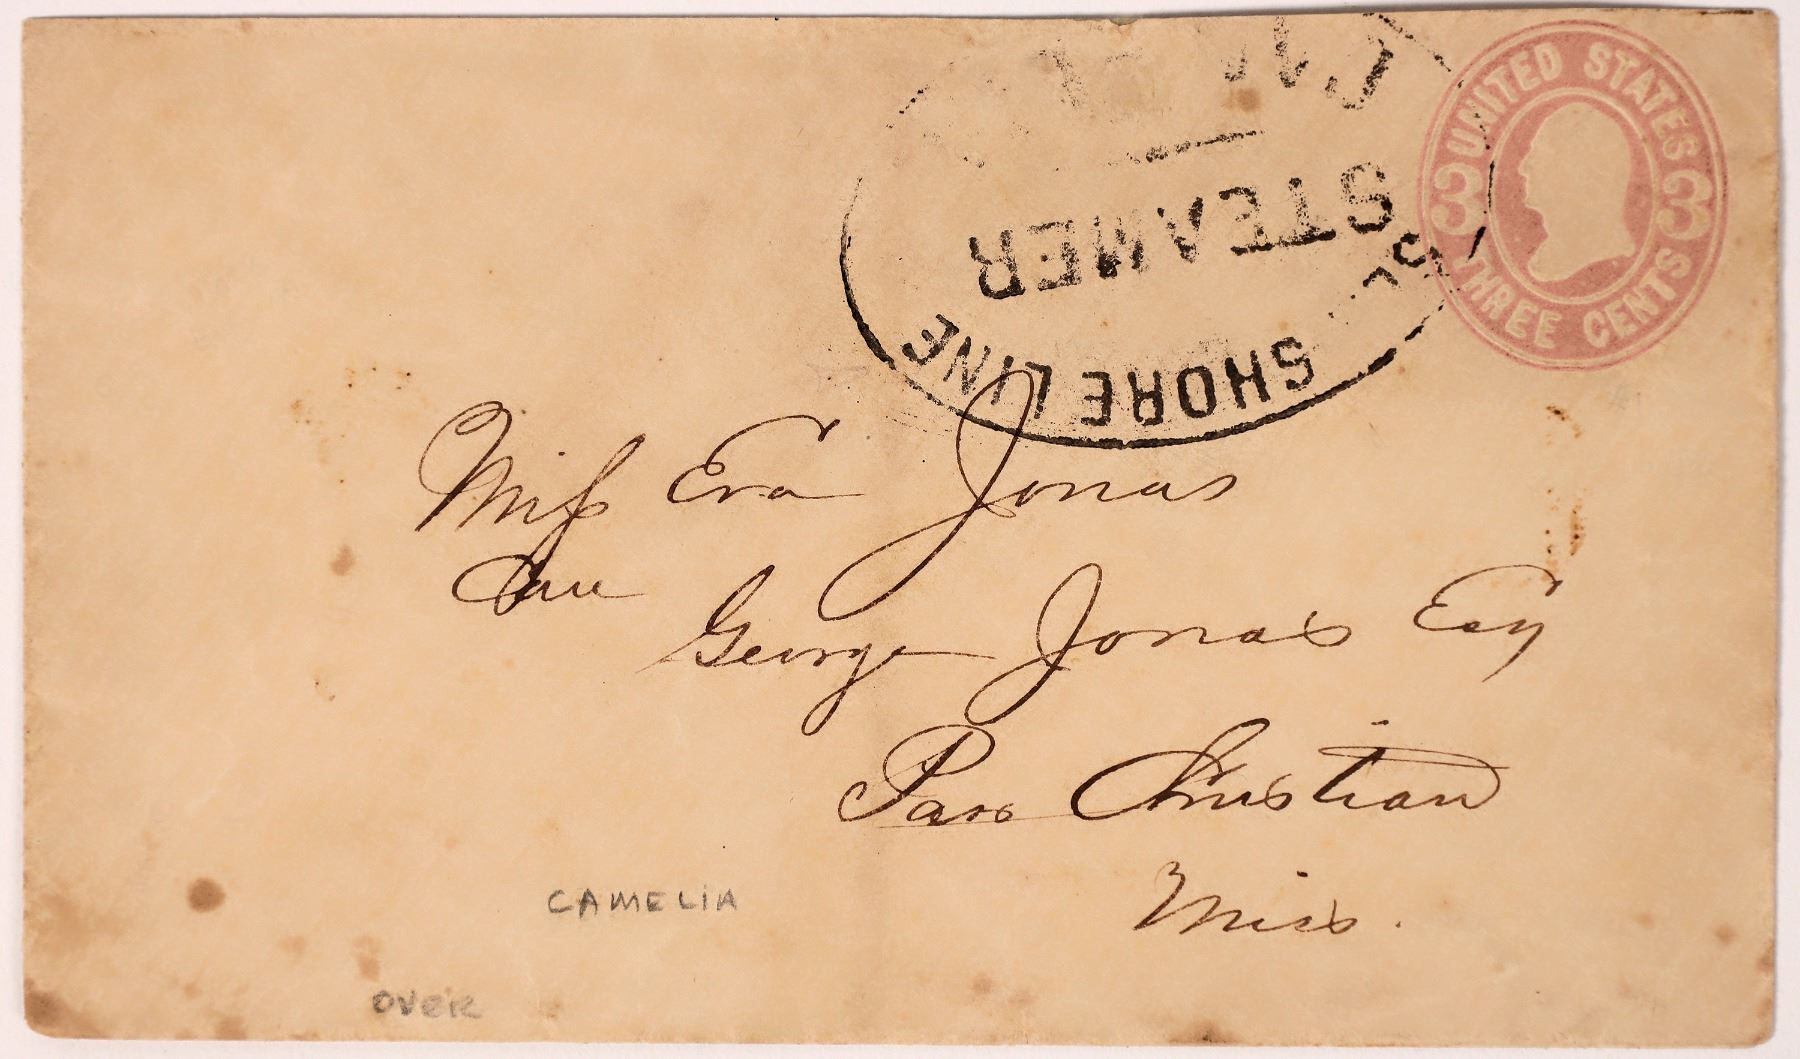 UNITED STATES
3 3
THREE CENTS
STEAMER
SHORE LINE
Miss Eva Jonas
Care
George Jonas Esq
Pass Christian
Miss.
CAMELIA
OVER